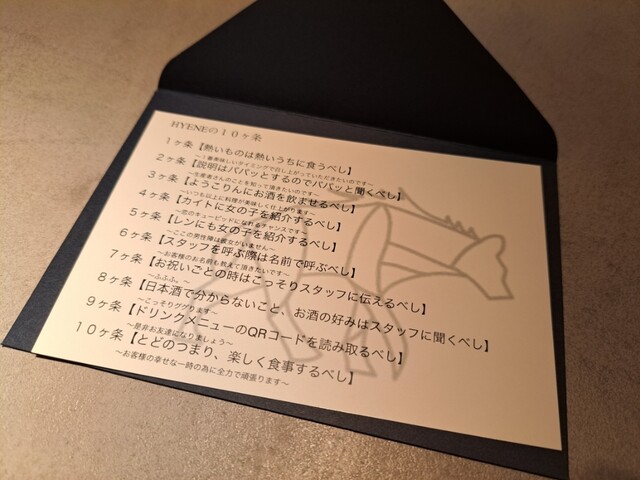 HYENEの10ヶ条
1ヶ条【熱いものは熱いうちに食うべし】
～1番美味しいタイミングで召し上がっていただきたいのです～
2ヶ条【説明はパパッとするのでパパッと聞くべし】
～生産者さんのことを知って頂きたいのです～
3ヶ条【ようこりんにお酒を飲ませるべし】
～いつも以上に料理が美味しく仕上がります～
4ヶ条【カイトに女の子を紹介するべし】
～恋のキューピッドになれるチャンスです～
5ヶ条【レンにも女の子を紹介するべし】
～ここの男性陣は彼女がいません～
6ヶ条【スタッフを呼ぶ際は名前で呼ぶべし】
～お客様のお名前も教えて頂きたいです～
7ヶ条【お祝いごとの時はこっそりスタッフに伝えるべし】
～ふふふ。～
8ヶ条【日本酒で分からないこと、お酒の好みはスタッフに聞くべし】
～こっそりググります～
9ヶ条【ドリンクメニューのQRコードを読み取るべし】
～是非お友達になりましょう～
10ヶ条【とどのつまり、楽しく食事するべし】
～お客様の幸せな一時の為に全力で頑張ります～